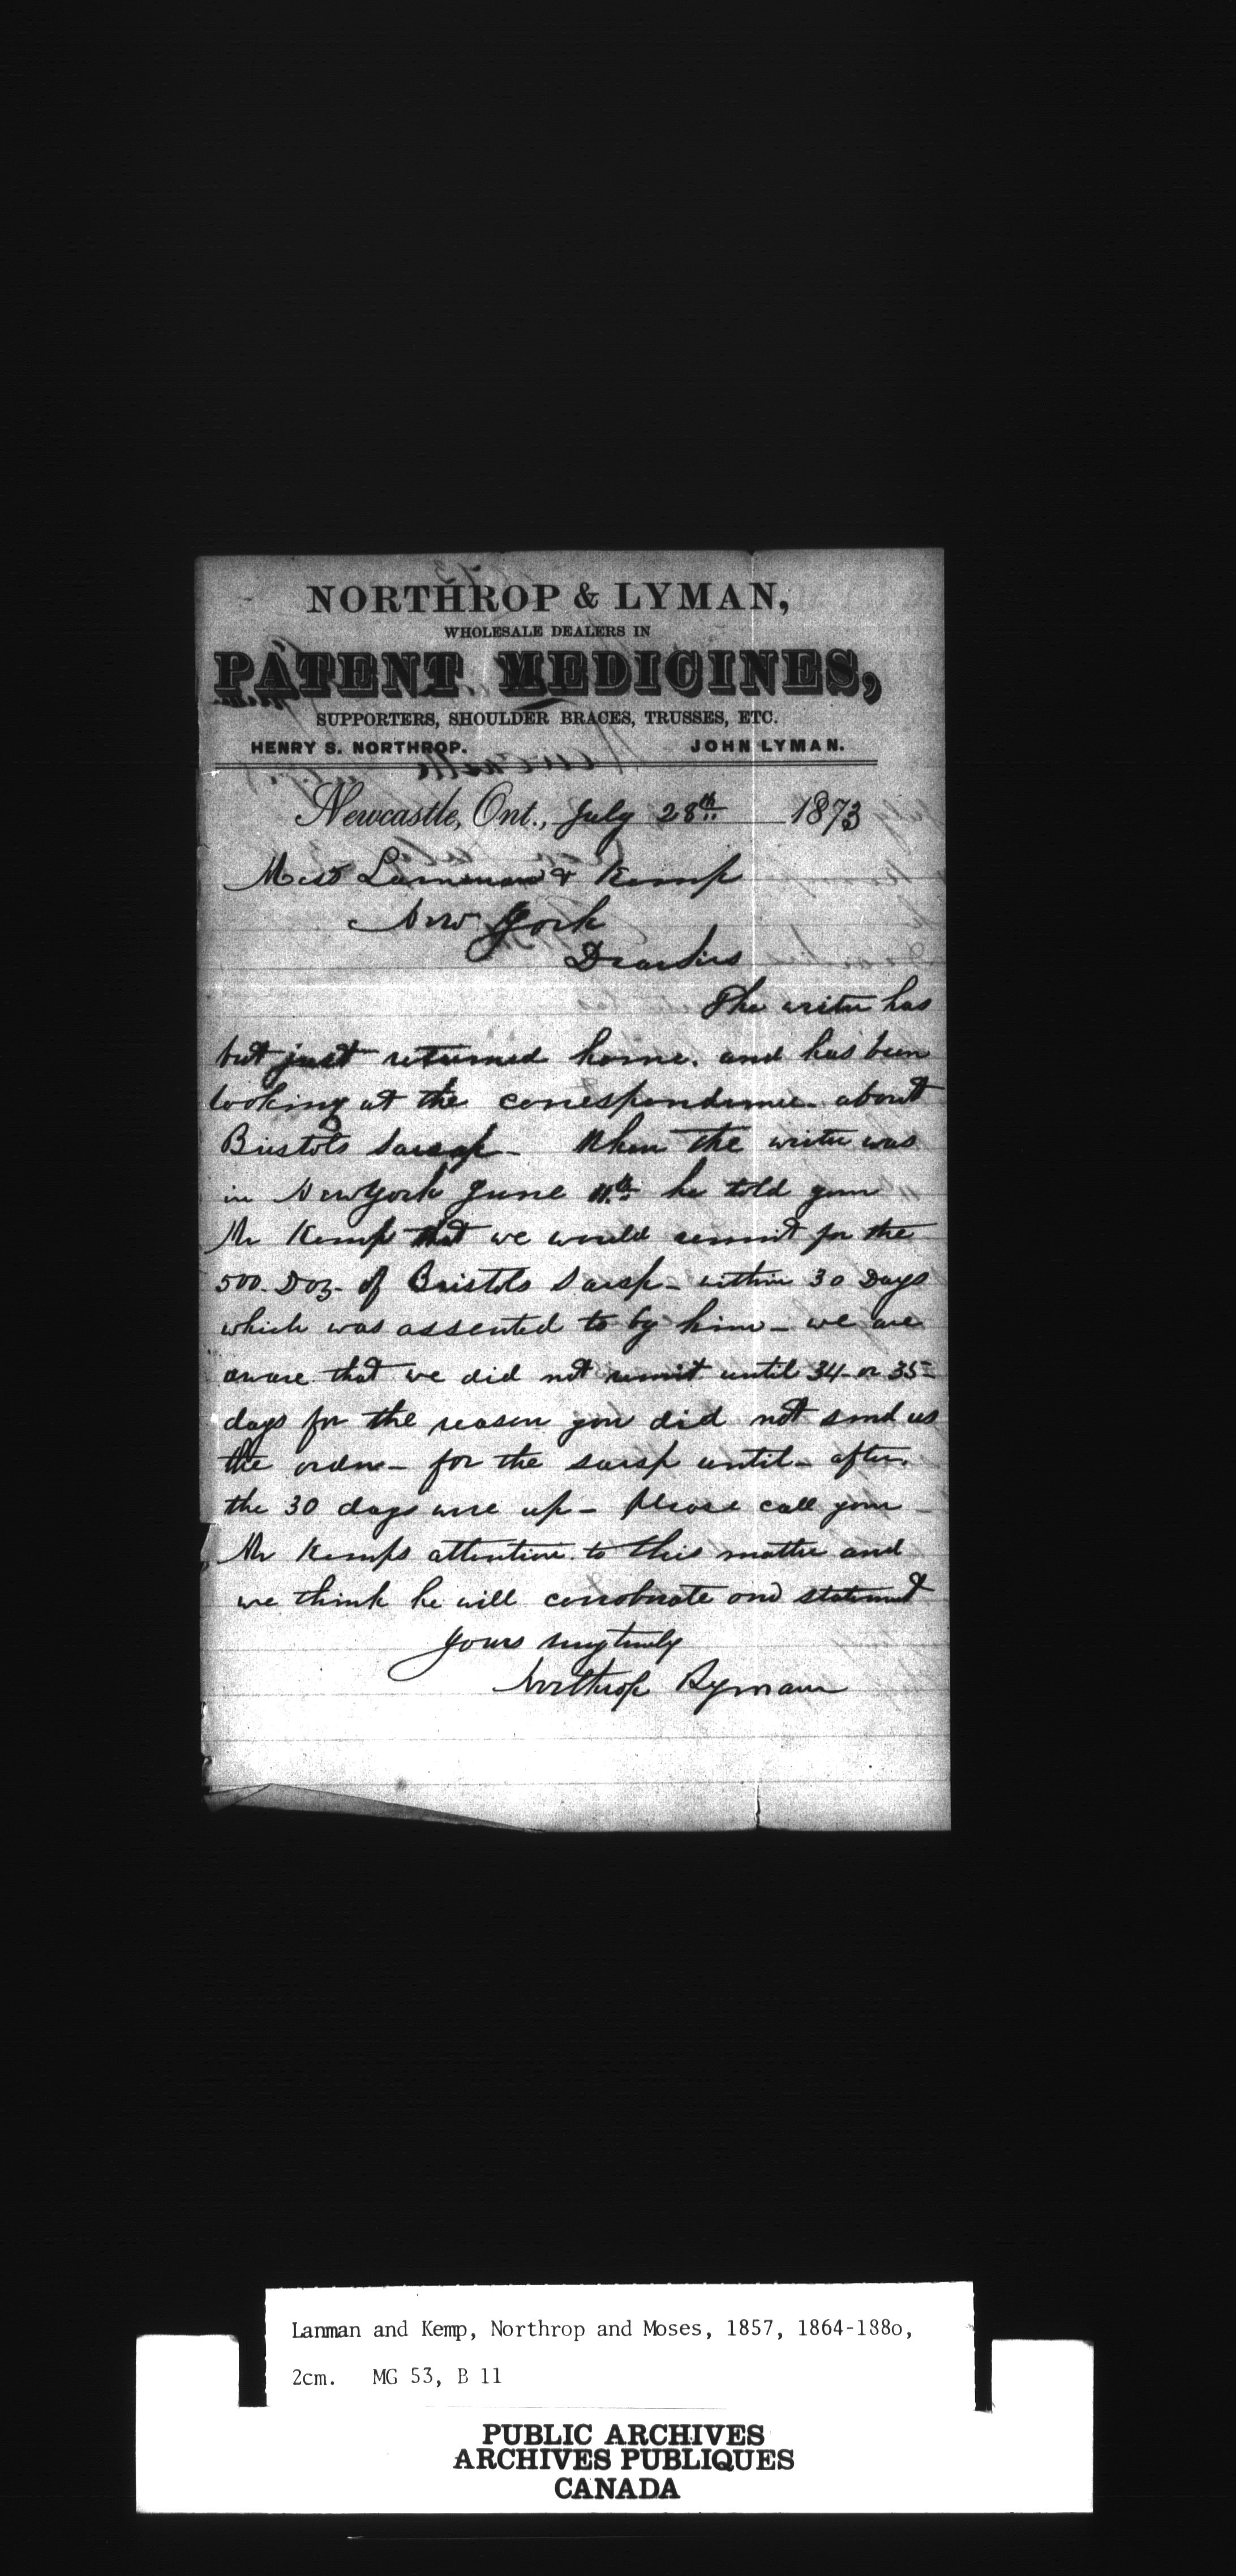 NORTHROP & LYMAN,
WHOLESALE DEALERS IN
PATENT MEDICINES,
SUPPORTERS, SHOULDER BRACES, TRUSSES, ETC.
HENRY S. NORTHROP. JOHN LYMAN.
Newcastle, Ont., July 28th 1873
Mess Lanman & Kemp
New York
Dear Sirs
The writer has
but just returned home. and has been
looking at the correspondence about
Bristols Sarsap - When the writer was
in New York June 11th he told your
Mr Kemp that we would remit for the
500 Doz - of Bristols Sarsp - within 30 Days
which was assented to by him - we are
aware that we did not remit until 34 or 35
days for the reason you did not send us
the order - for the sarsp until - after
the 30 days were up - Please call your
Mr Kemps attention to this matter and
we think he will corroborate our statement
Yours very truly
Northrop Lyman
Lanman and Kemp, Northrop and Moses, 1857, 1864-188o,
2cm. MG 53, B 11
PUBLIC ARCHIVES
ARCHIVES PUBLIQUES
CANADA